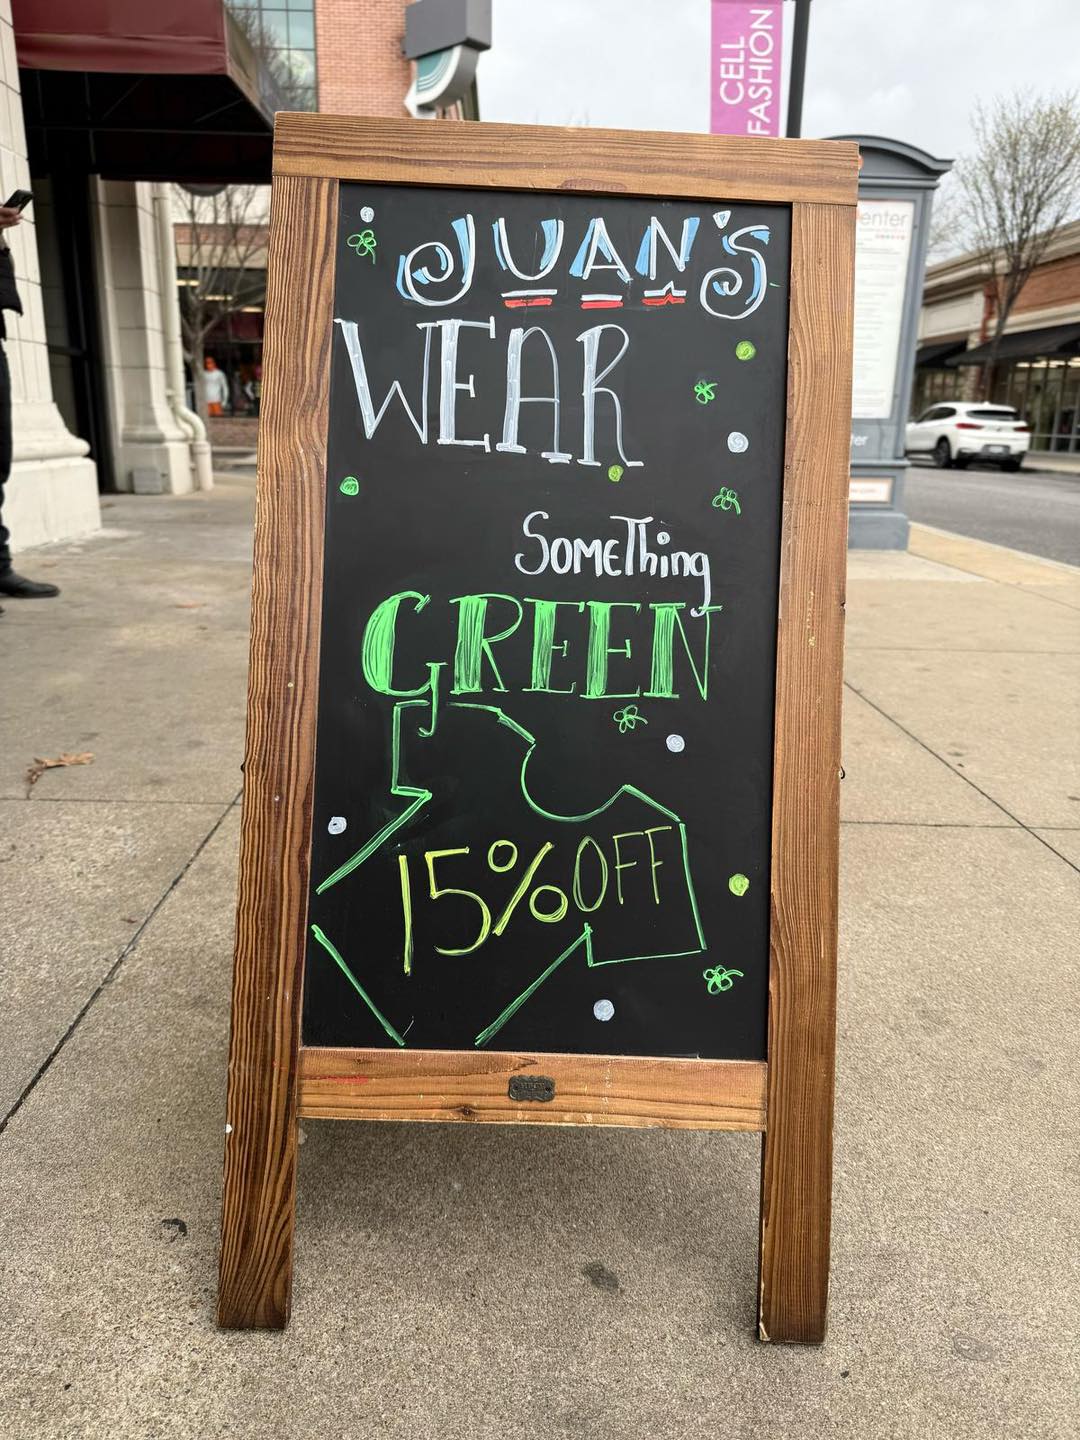 CELL
FASHION
enter
JUAN'S
WEAR
SOMEThing
GREEN
15% OFF